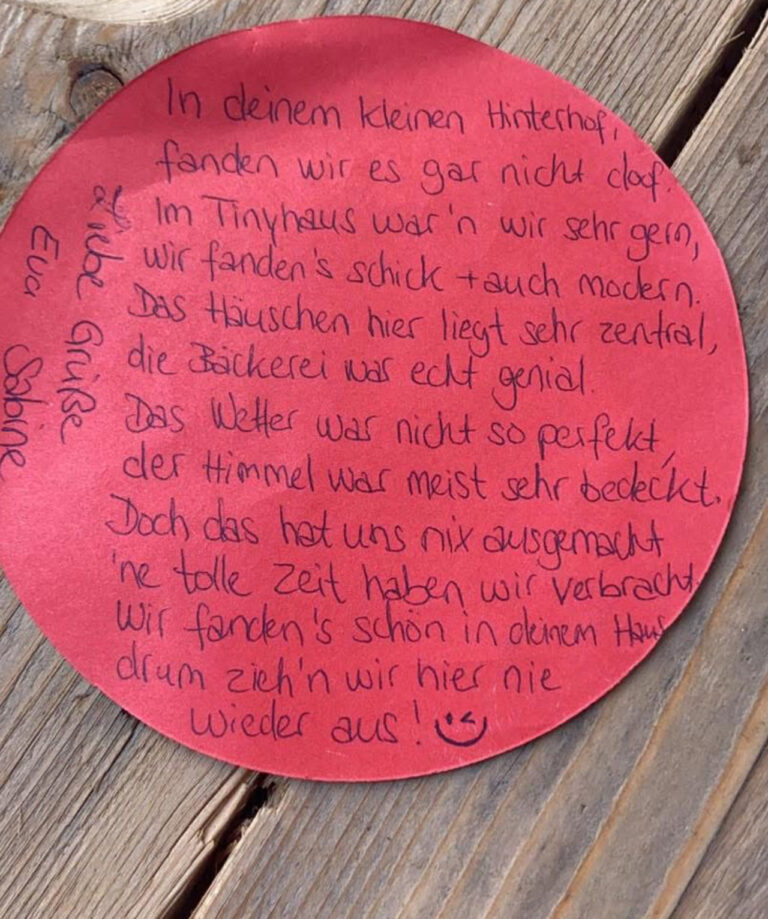 In deinem kleinen Hinterhof,
fanden wir es gar nicht doof.
Im Tinyhaus war'n wir sehr gern,
wir fanden's schick + auch modern.
Das Häuschen hier liegt sehr zentral,
die Bäckerei war echt genial.
Das Wetter war nicht so perfekt,
der Himmel war meist sehr bedeckt.
Doch das hat uns nix ausgemacht
'ne tolle Zeit haben wir verbracht
Wir fanden's schön in deinem Haus
drum zieh'n wir hier nie
wieder aus!
Liebe Grüße
Eva Sabine